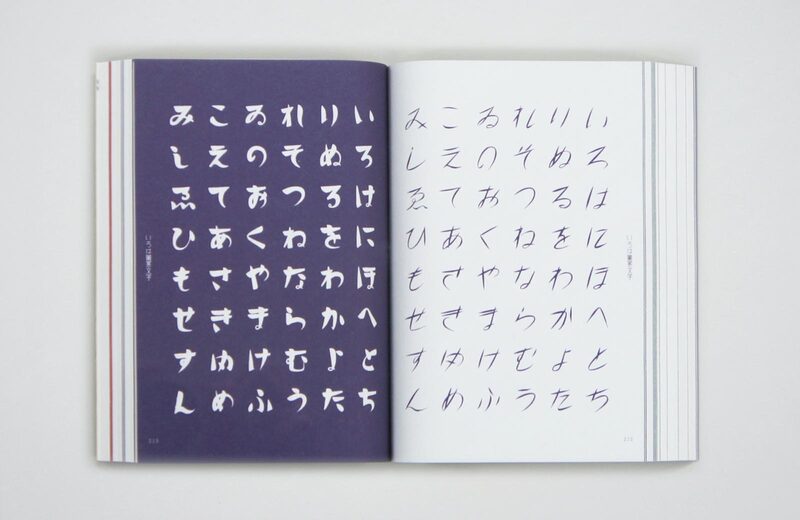 いろはにほへとち
りぬるをわかよた
れそつねならむう
ゐのおくやまけふ
こえてあさきゆめ
みしゑひもせすん
いろは圖案文字
いろはにほへとち
りぬるをわかよた
れそつねならむう
ゐのおくやまけふ
こえてあさきゆめ
みしゑひもせすん
いろは圖案文字